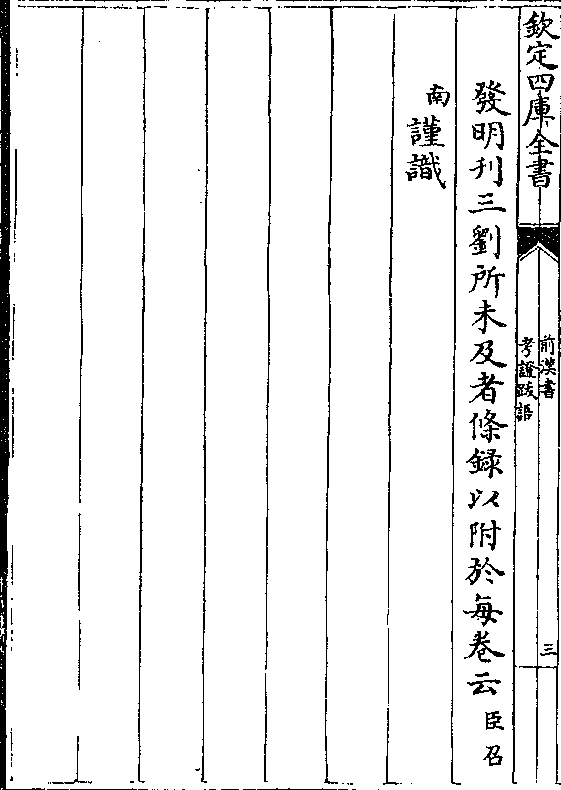 欽定四庫全書
前漢書
考證跋語
三
發明刋三劉所未及者條録以附於每卷云臣召
南謹識